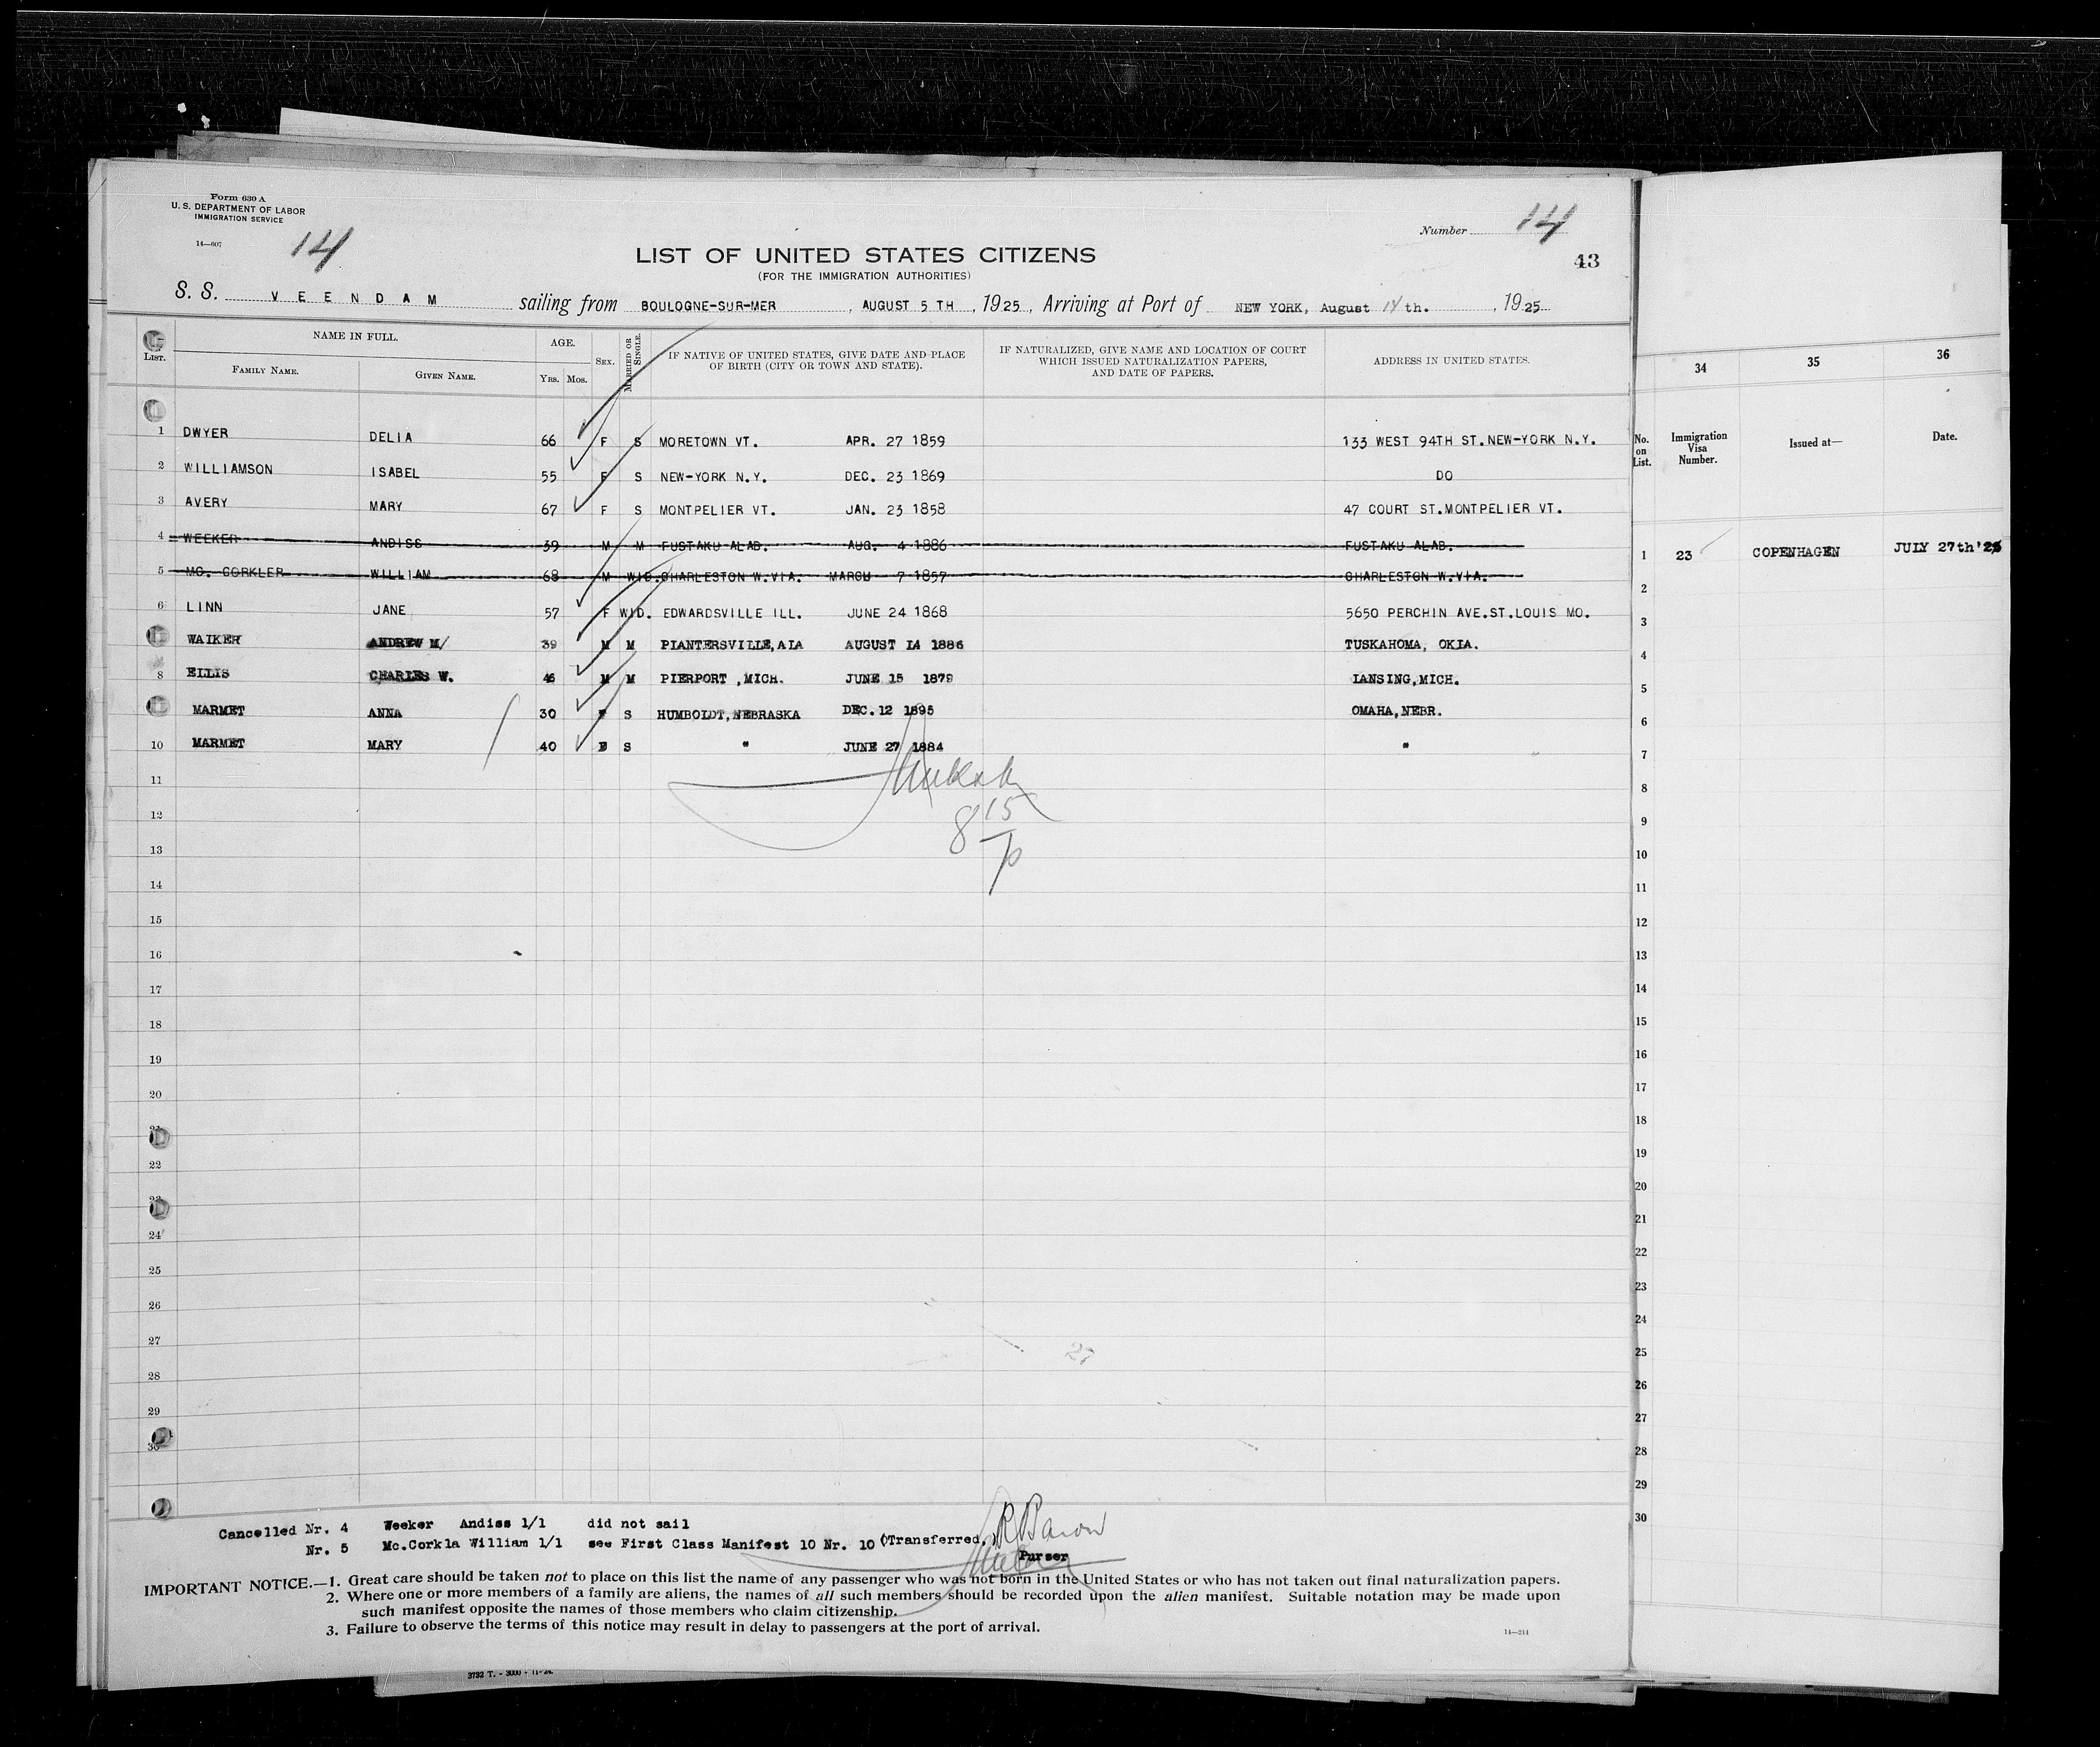 Form 630 A
U. S. DEPARTMENT OF LABOR
IMMIGRATION SERVICE
14—607
14
Number 14
43
LIST OF UNITED STATES CITIZENS
(FOR THE IMMIGRATION AUTHORITIES)
S. S. VEENDAM sailing from BOULOGNE-SUR-MER, AUGUST 5 TH, 1925, Arriving at Port of NEW YORK, August 14th., 1925
LIST. NAME IN FULL. AGE. SEX. MARRIED OR SINGLE. IF NATIVE OF UNITED STATES, GIVE DATE AND PLACE OF BIRTH (CITY OR TOWN AND STATE). IF NATURALIZED, GIVE NAME AND LOCATION OF COURT WHICH ISSUED NATURALIZATION PAPERS, AND DATE OF PAPERS. ADDRESS IN UNITED STATES.
FAMILY NAME. GIVEN NAME. YRS. MOS.
1 DWYER DELIA 66 F S MORETOWN VT. APR. 27 1859 133 WEST 94TH ST.NEW-YORK N.Y.
2 WILLIAMSON ISABEL 55 F S NEW-YORK N.Y. DEC. 23 1869 DO
3 AVERY MARY 67 F S MONTPELIER VT. JAN. 23 1858 47 COURT ST.MONTPELIER VT.
4 WEEKER ANDISS 39 M M FUSTAKU ALAB. AUG. 4 1886 FUSTAKU ALAB.
5 MC. CORKLER WILLIAM 68 M WID. CHARLESTON W.VIA. MARCH 7 1857 CHARLESTON W.VIA.
6 LINN JANE 57 F WID. EDWARDSVILLE ILL. JUNE 24 1868 5650 PERCHIN AVE.ST.LOUIS MO.
WAlKER ANDREW M/ 39 M M PlANTERSVILLE,AlA AUGUST 14 1886 TUSKAHOMA, OKlA.
8 ELLIS CHARLES W. 46 M M PIERPORT ,MICH. JUNE 15 1879 lANSING,MICH.
MARMET ANNA 30 F S HUMBOLDT,NEBRASKA DEC.12 1895 OMAHA,NEBR.
10 MARMET MARY 40 F S " JUNE 27 1884 "
11
12
13
14
15
16
17
18
19
20
21
22
23
24
25
26
27
28
29
30
8 15
27
Cancelled Nr. 4 Weeker Andiss 1/1 did not sail
Nr. 5 Mc.Corkla William 1/1 see First Class Manifest 10 Nr. 10 (Transferred,)
R Baron
Purser
IMPORTANT NOTICE.—1. Great care should be taken not to place on this list the name of any passenger who was not born in the United States or who has not taken out final naturalization papers.
2. Where one or more members of a family are aliens, the names of all such members should be recorded upon the alien manifest. Suitable notation may be made upon
such manifest opposite the names of those members who claim citizenship.
3. Failure to observe the terms of this notice may result in delay to passengers at the port of arrival.
14—214
3732 T. - 3000 - 11-24.
34 35 36
No. on List. Immigration Visa Number. Issued at— Date.
1 23 COPENHAGEN JULY 27th'25
2
3
4
5
6
7
8
9
10
11
12
13
14
15
16
17
18
19
20
21
22
23
24
25
26
27
28
29
30